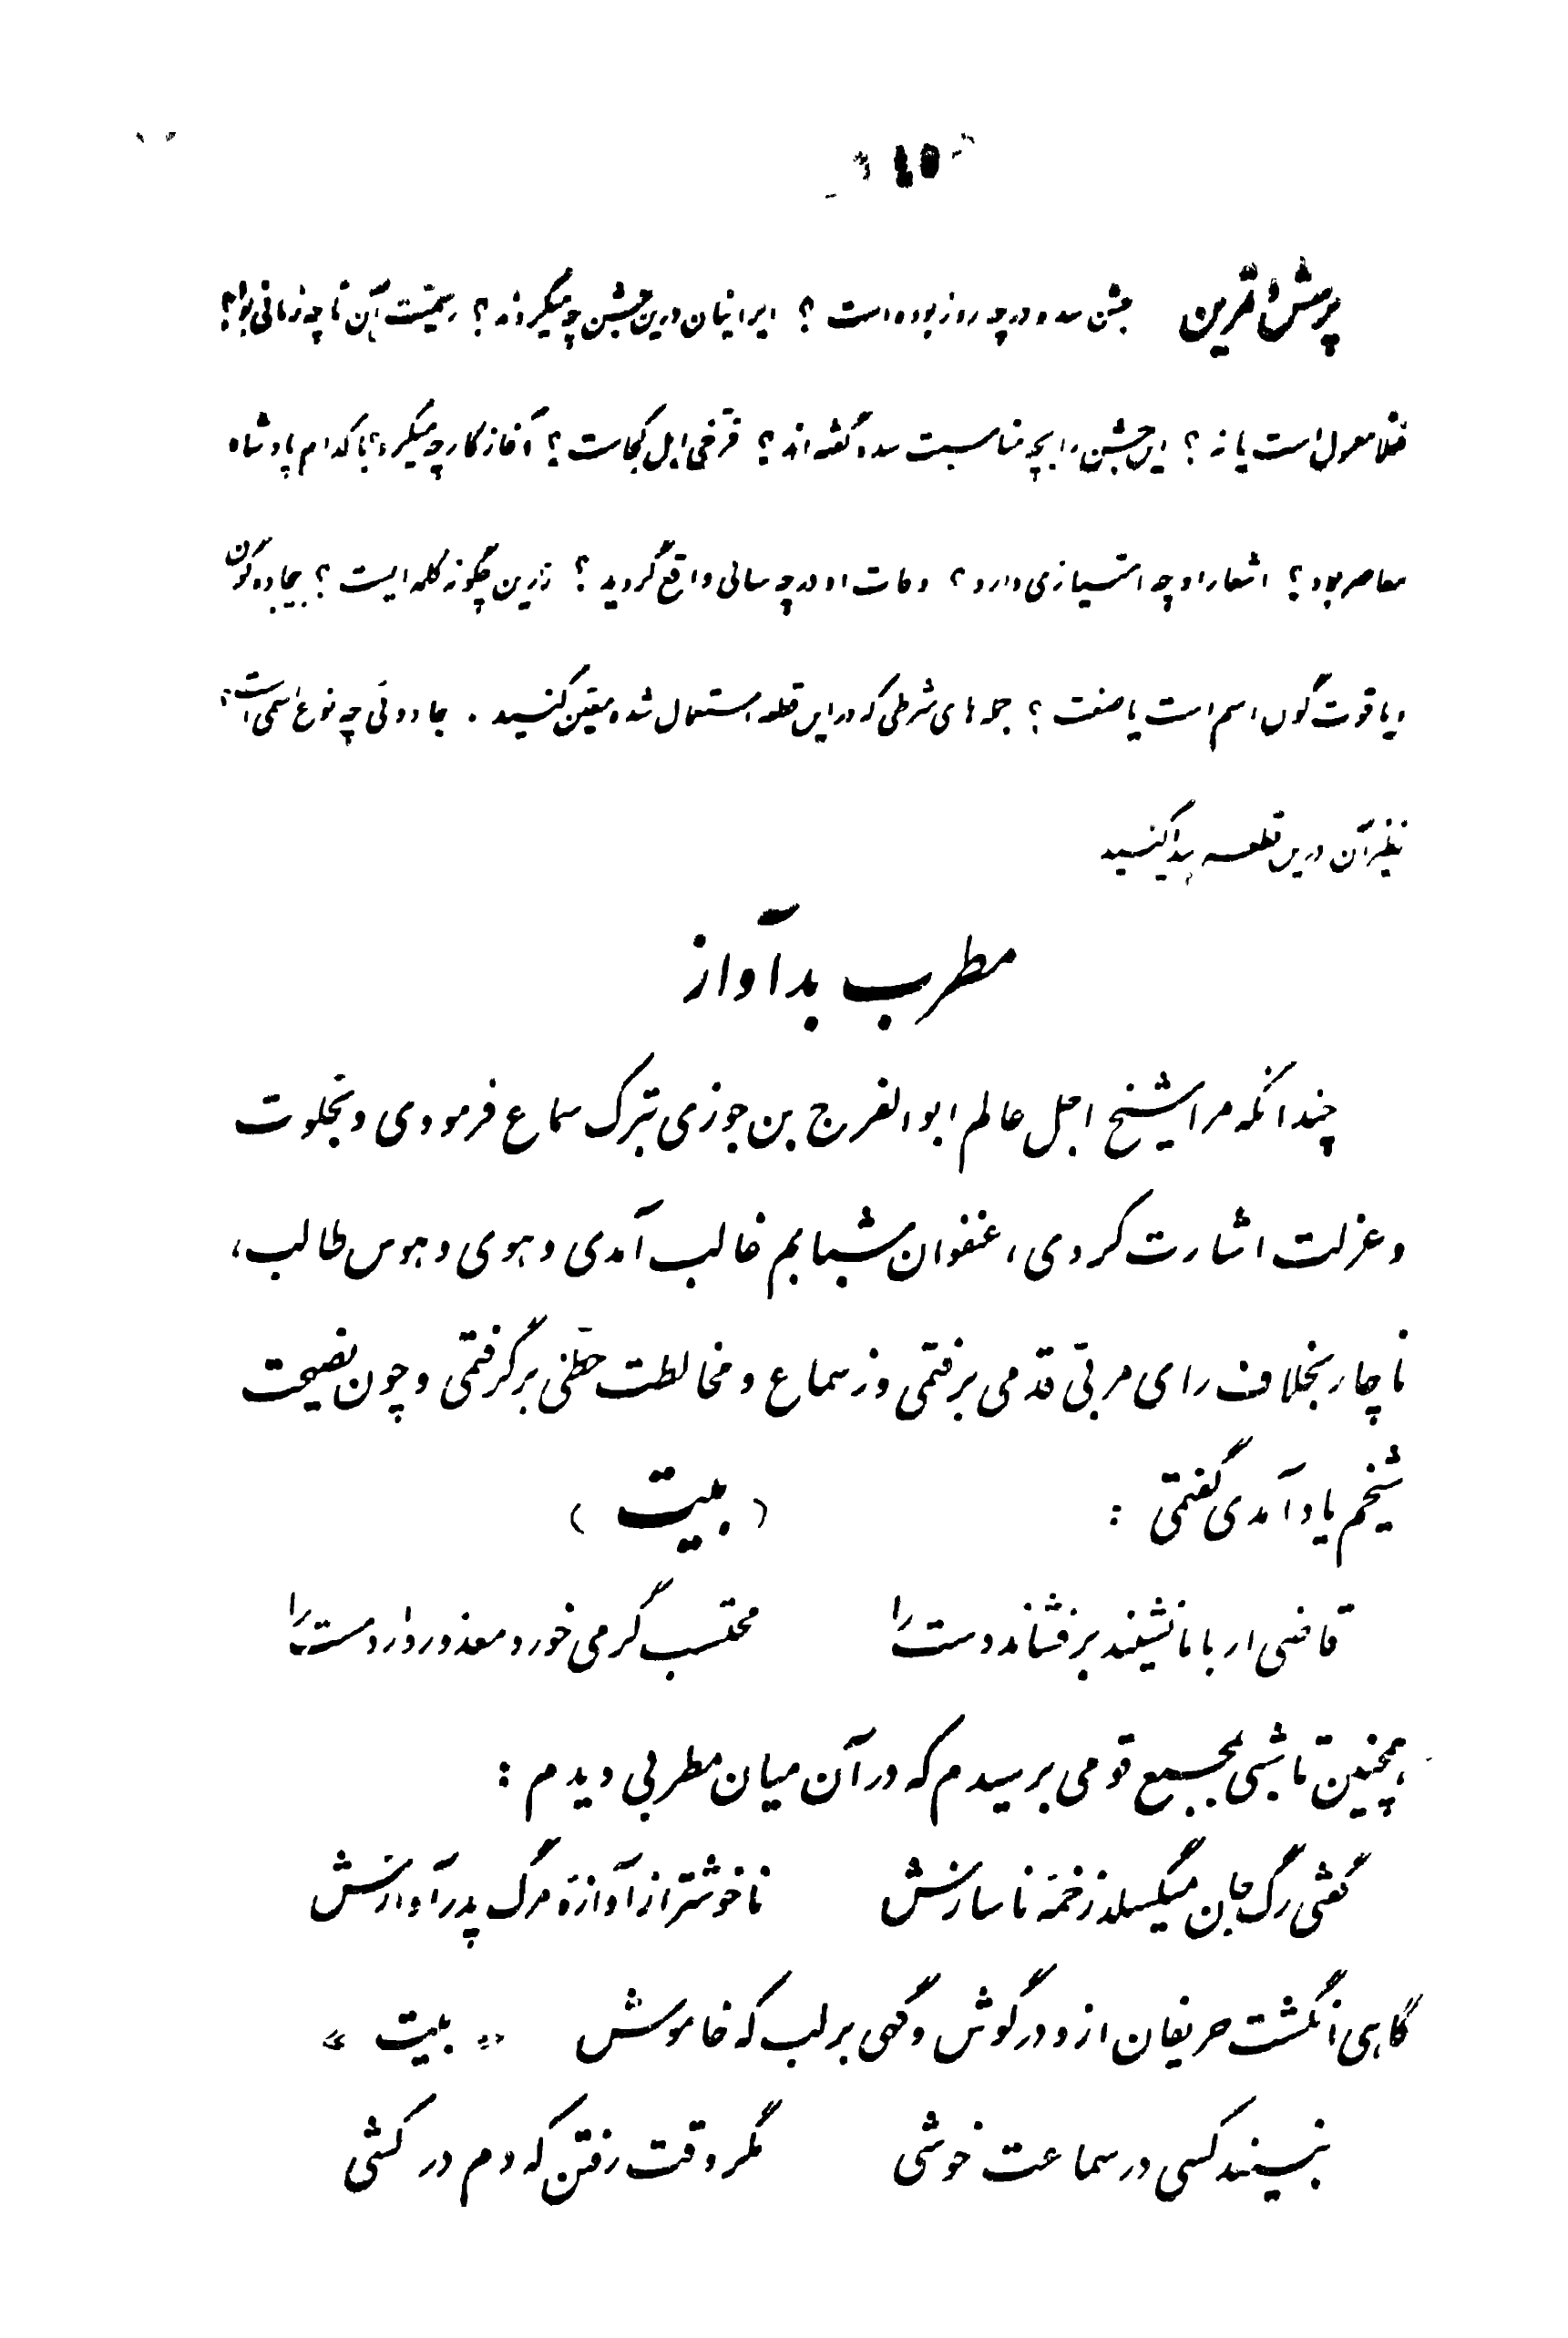 ۴۵
پرسش و تمرین جشن سده در چه روز بوده است ؟ ایرانیان درین جشن چه میکردند ؟ رسمیت این تا چه زمانی بود؟
فعلا معمول است یا نه ؟ این جشن را بچه مناسبت سده گفته اند ؟ فرخی اهل کجاست ؟ آغاز کار چه میکرد؟ با کدام پادشاه
معاصر بود ؟ اشعار او چه امتیازی دارد ؟ وفات او در چه سالی واقع گردید ؟ زرین چگونه کلمه ایست ؟ بیجاده گون
و یاقوت گون اسم است یا صفت ؟ جمله های شرطی که در این قطعه استعمال شده معین کنید . جادوئی چه نوع اسمی است ؟
نظیر آن درین قطعه پیدا کنید
مطرب بد آواز
چندانکه مرا شیخ اجل عالم ابوالفرج بن جوزی بترک سماع فرمودی و بخلوت
و عزلت اشارت کردی ، عنفوان شبابم غالب آمدی و هوی و هوس طالب ،
ناچار بخلاف رای مربّی قدمی برفتمی وز سماع و مخالطت حظّی برگرفتمی و چون نصیحت
شیخم یاد آمدی گفتمی : ( بیت )
قاضی ار با ما نشیند برفشاند دست را محتسب گر می خورد معذور دارد مست را
همچنین تا شبی بمجمع قومی برسیدم که در آن میان مطربی دیدم :
گفتی رگ جان میگسلد زخمهٔ ناسازش ناخوشتر از آوازهٔ مرگ پدر آوازش
گاهی انگشت حریفان ازو در گوش و گهی بر لب که خاموش « بیت »
نبیند کسی در سماعت خوشی مگر وقت رفتن که دم در کشی